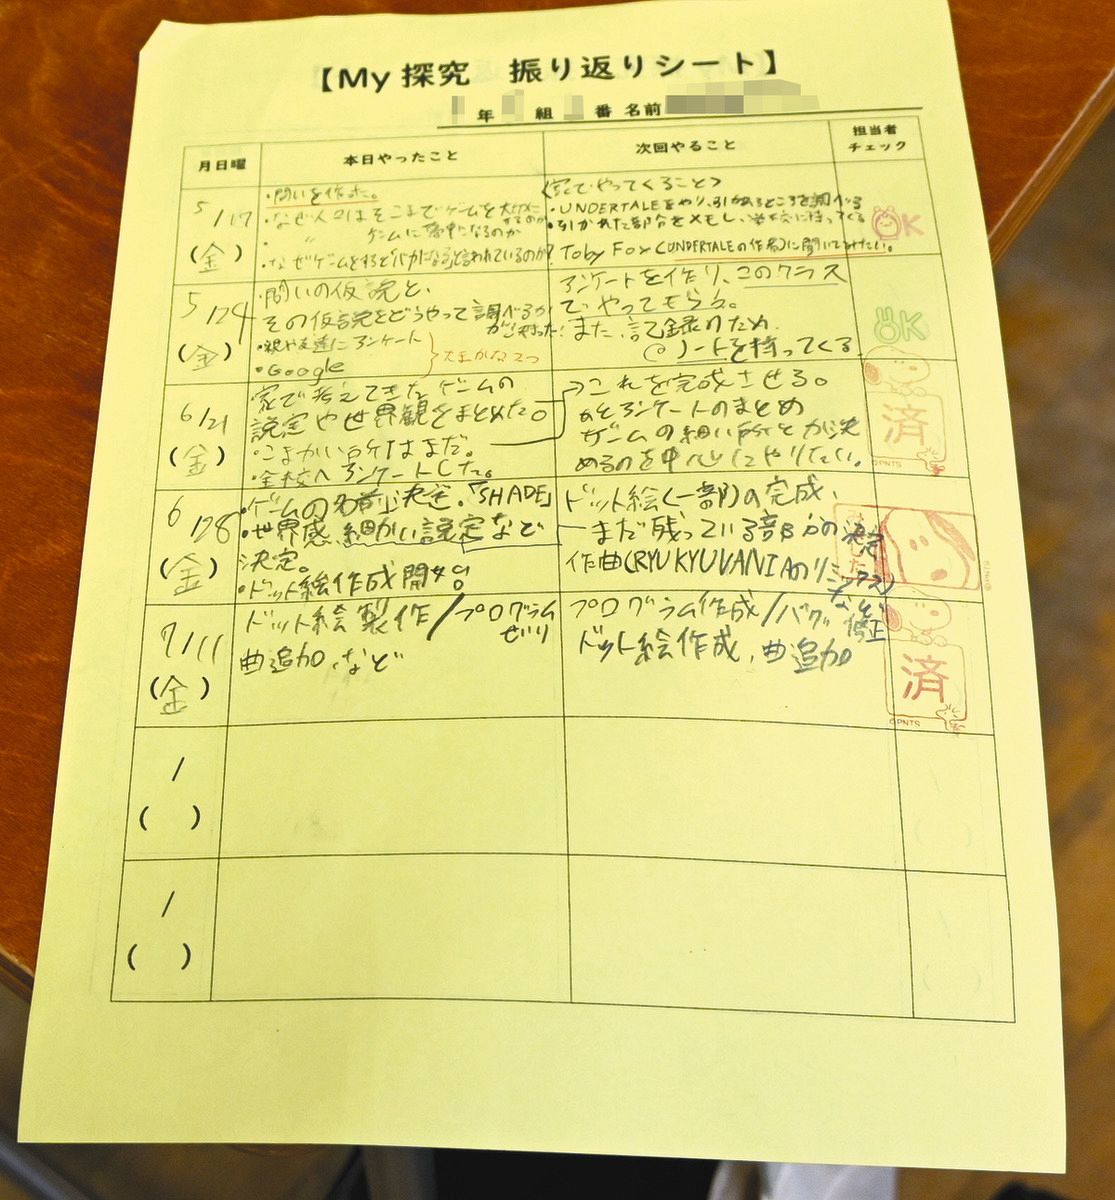 【My 探究 振り返りシート】
年 組 番 名前
月日曜 本日やったこと 次回やること 担当者チェック
5/17(金)
・問いを作った。
・なぜ人々はそこまでゲームを大切にするのか
・〃 ゲームに夢中になるのか
・なぜゲームをすると「バカになる」と言われているのか?
<家でやってくること>
・UNDERTALEをやり、引かれるところを調べる
・引かれた部分をメモし、学校に持ってくる
Toby Fox(UNDERTALEの作者)に聞いてみたい。
OK
5/24(金)
・問いの仮説と、
その仮説をどうやって調べるか
が決まった!
・親や友達にアンケート
・Google
大まかな2つ
アンケートを作り、このクラス
でやってもらう。
また、記録のため
@ノートを持ってくる
OK
6/21(金)
家で考えてきたゲームの
設定や世界観をまとめた。
・こまかい所はまだ。
・全校へアンケートした。
→これを完成させる。
あとアンケートのまとめ
ゲームの細い所とか決
めるのを中心にやりたい。
済
©PNTS
6/28(金)
・ゲームの名前決定。「SHADE」
・世界感、細かい設定など
決定。
・ドット絵作成開始。
ドット絵(一部)の完成、
まだ残っている部分の決定
作曲(RYUKYUVANIAのリミックス)
など
7/11(金)
ドット絵製作/プログラム
せいり
曲追加、など
プログラム作成/バグ修正
ドット絵作成、曲追加
済
©PNTS
/
( )
/
( )